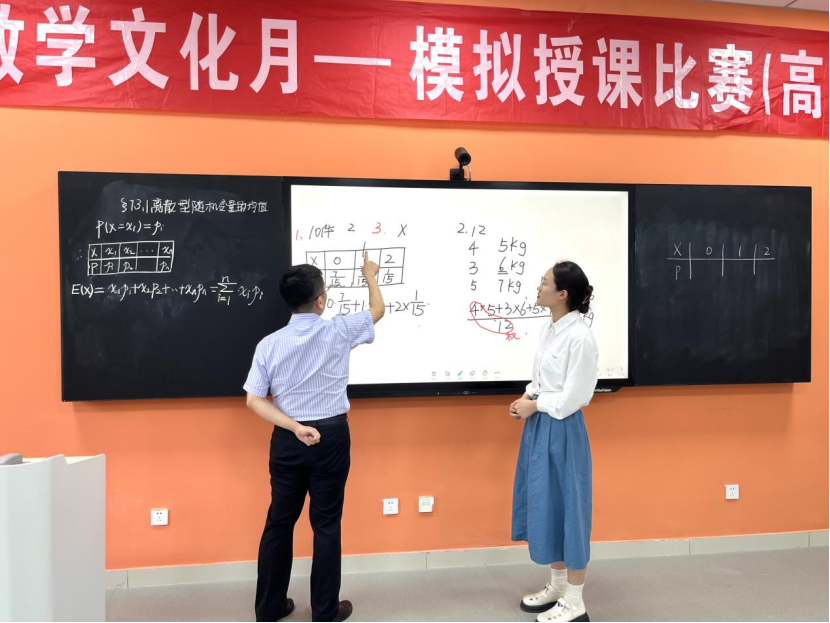 数学文化月——模拟授课比赛(高
§7.3.1离散型随机变量的均值
P(X=xi)=pi
X x1 x2 ··· xn
P p1 p2 pn
E(X)=x1p1+x2p2+···+xnpn=∑i=1n xipi
1. 10件 2 3. X
X 0 1 2
7/15 7/15 1/15
0 7/15+1 +2×1/15
2. 12
4 5kg
3 6kg
5 7kg
4×5+3×6+5×
12
权
X 0 1 2
P